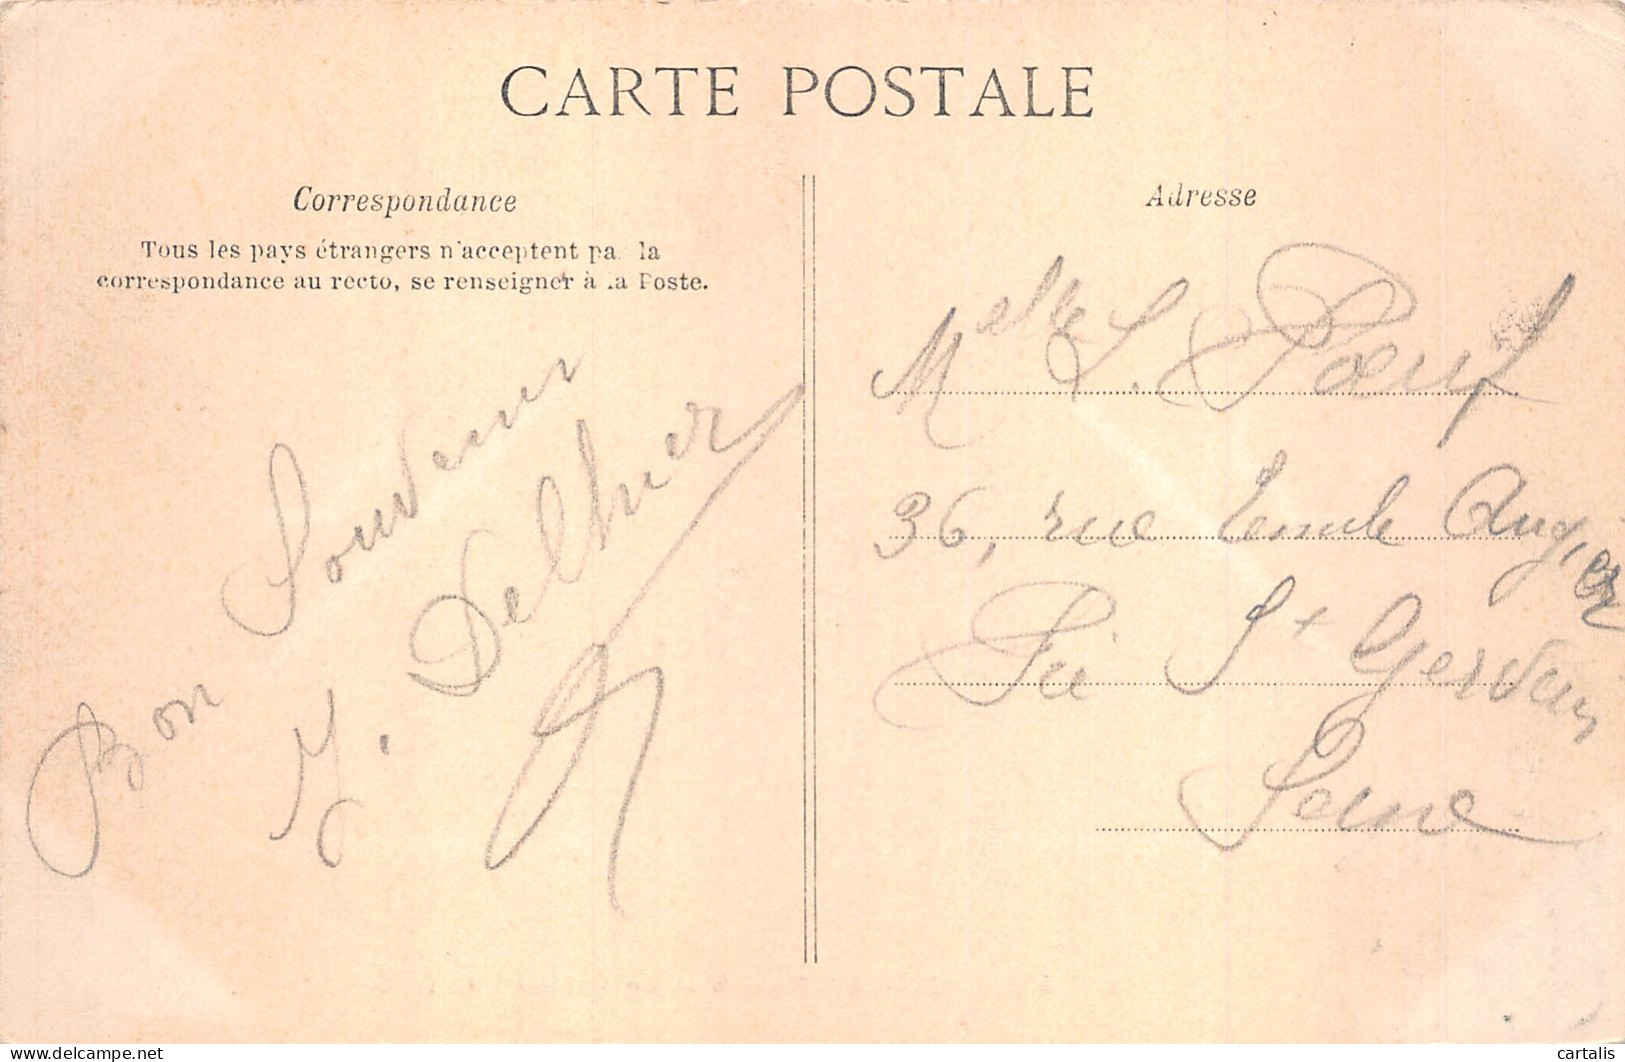 CARTE POSTALE
Correspondance
Tous les pays étrangers n'acceptent pa la
correspondance au recto, se renseigner à la Poste.
Bon Souvenir
Adresse
Melle L.
36, rue Emile Augier
Pré St Gervais
Seine
www.delcampe.net
cartalis